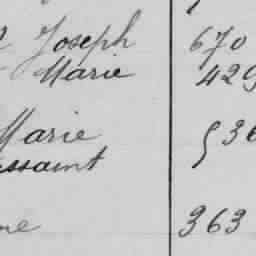 Joseph 670
Marie 429
Marie 536
ssaint
ne 363